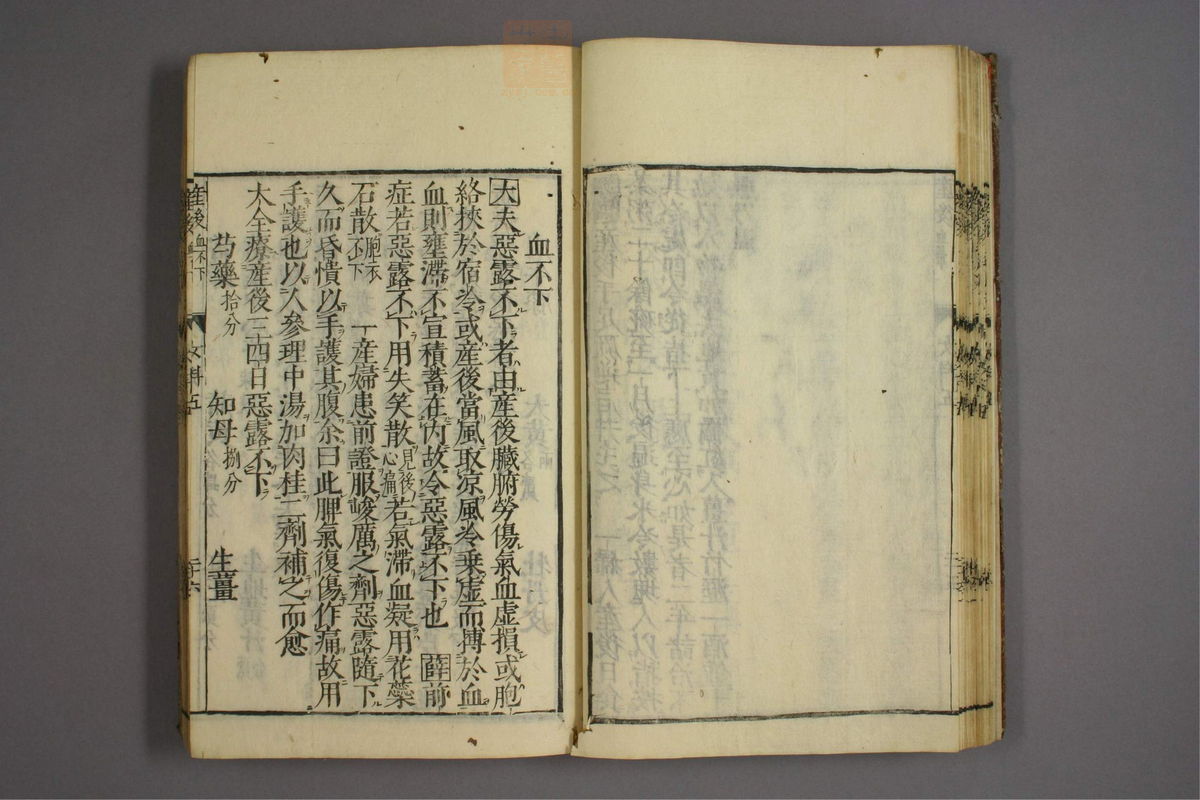 血不下
大夫惡露不下者由產後臟腑勞傷氣血虛損或胞
絡挾於宿冷或產後當風取凉風冷乘虛而搏於血
血則壅滯不宣積蓄在內故令惡露不下也 薛前
症若惡露不下用失笑散見後心痛若氣滯血凝用花蘂
石散胞衣不下 一產婦患前證服峻厲之劑惡露隨下
久而昏憒以手護其腹余曰此脾氣復傷作痛故用
手護也以人參理中湯加肉桂二劑補之而愈
太全療產後三四日惡露不下
芍藥拾分 知母捌分 生薑
產後血不下 女科五 二十六